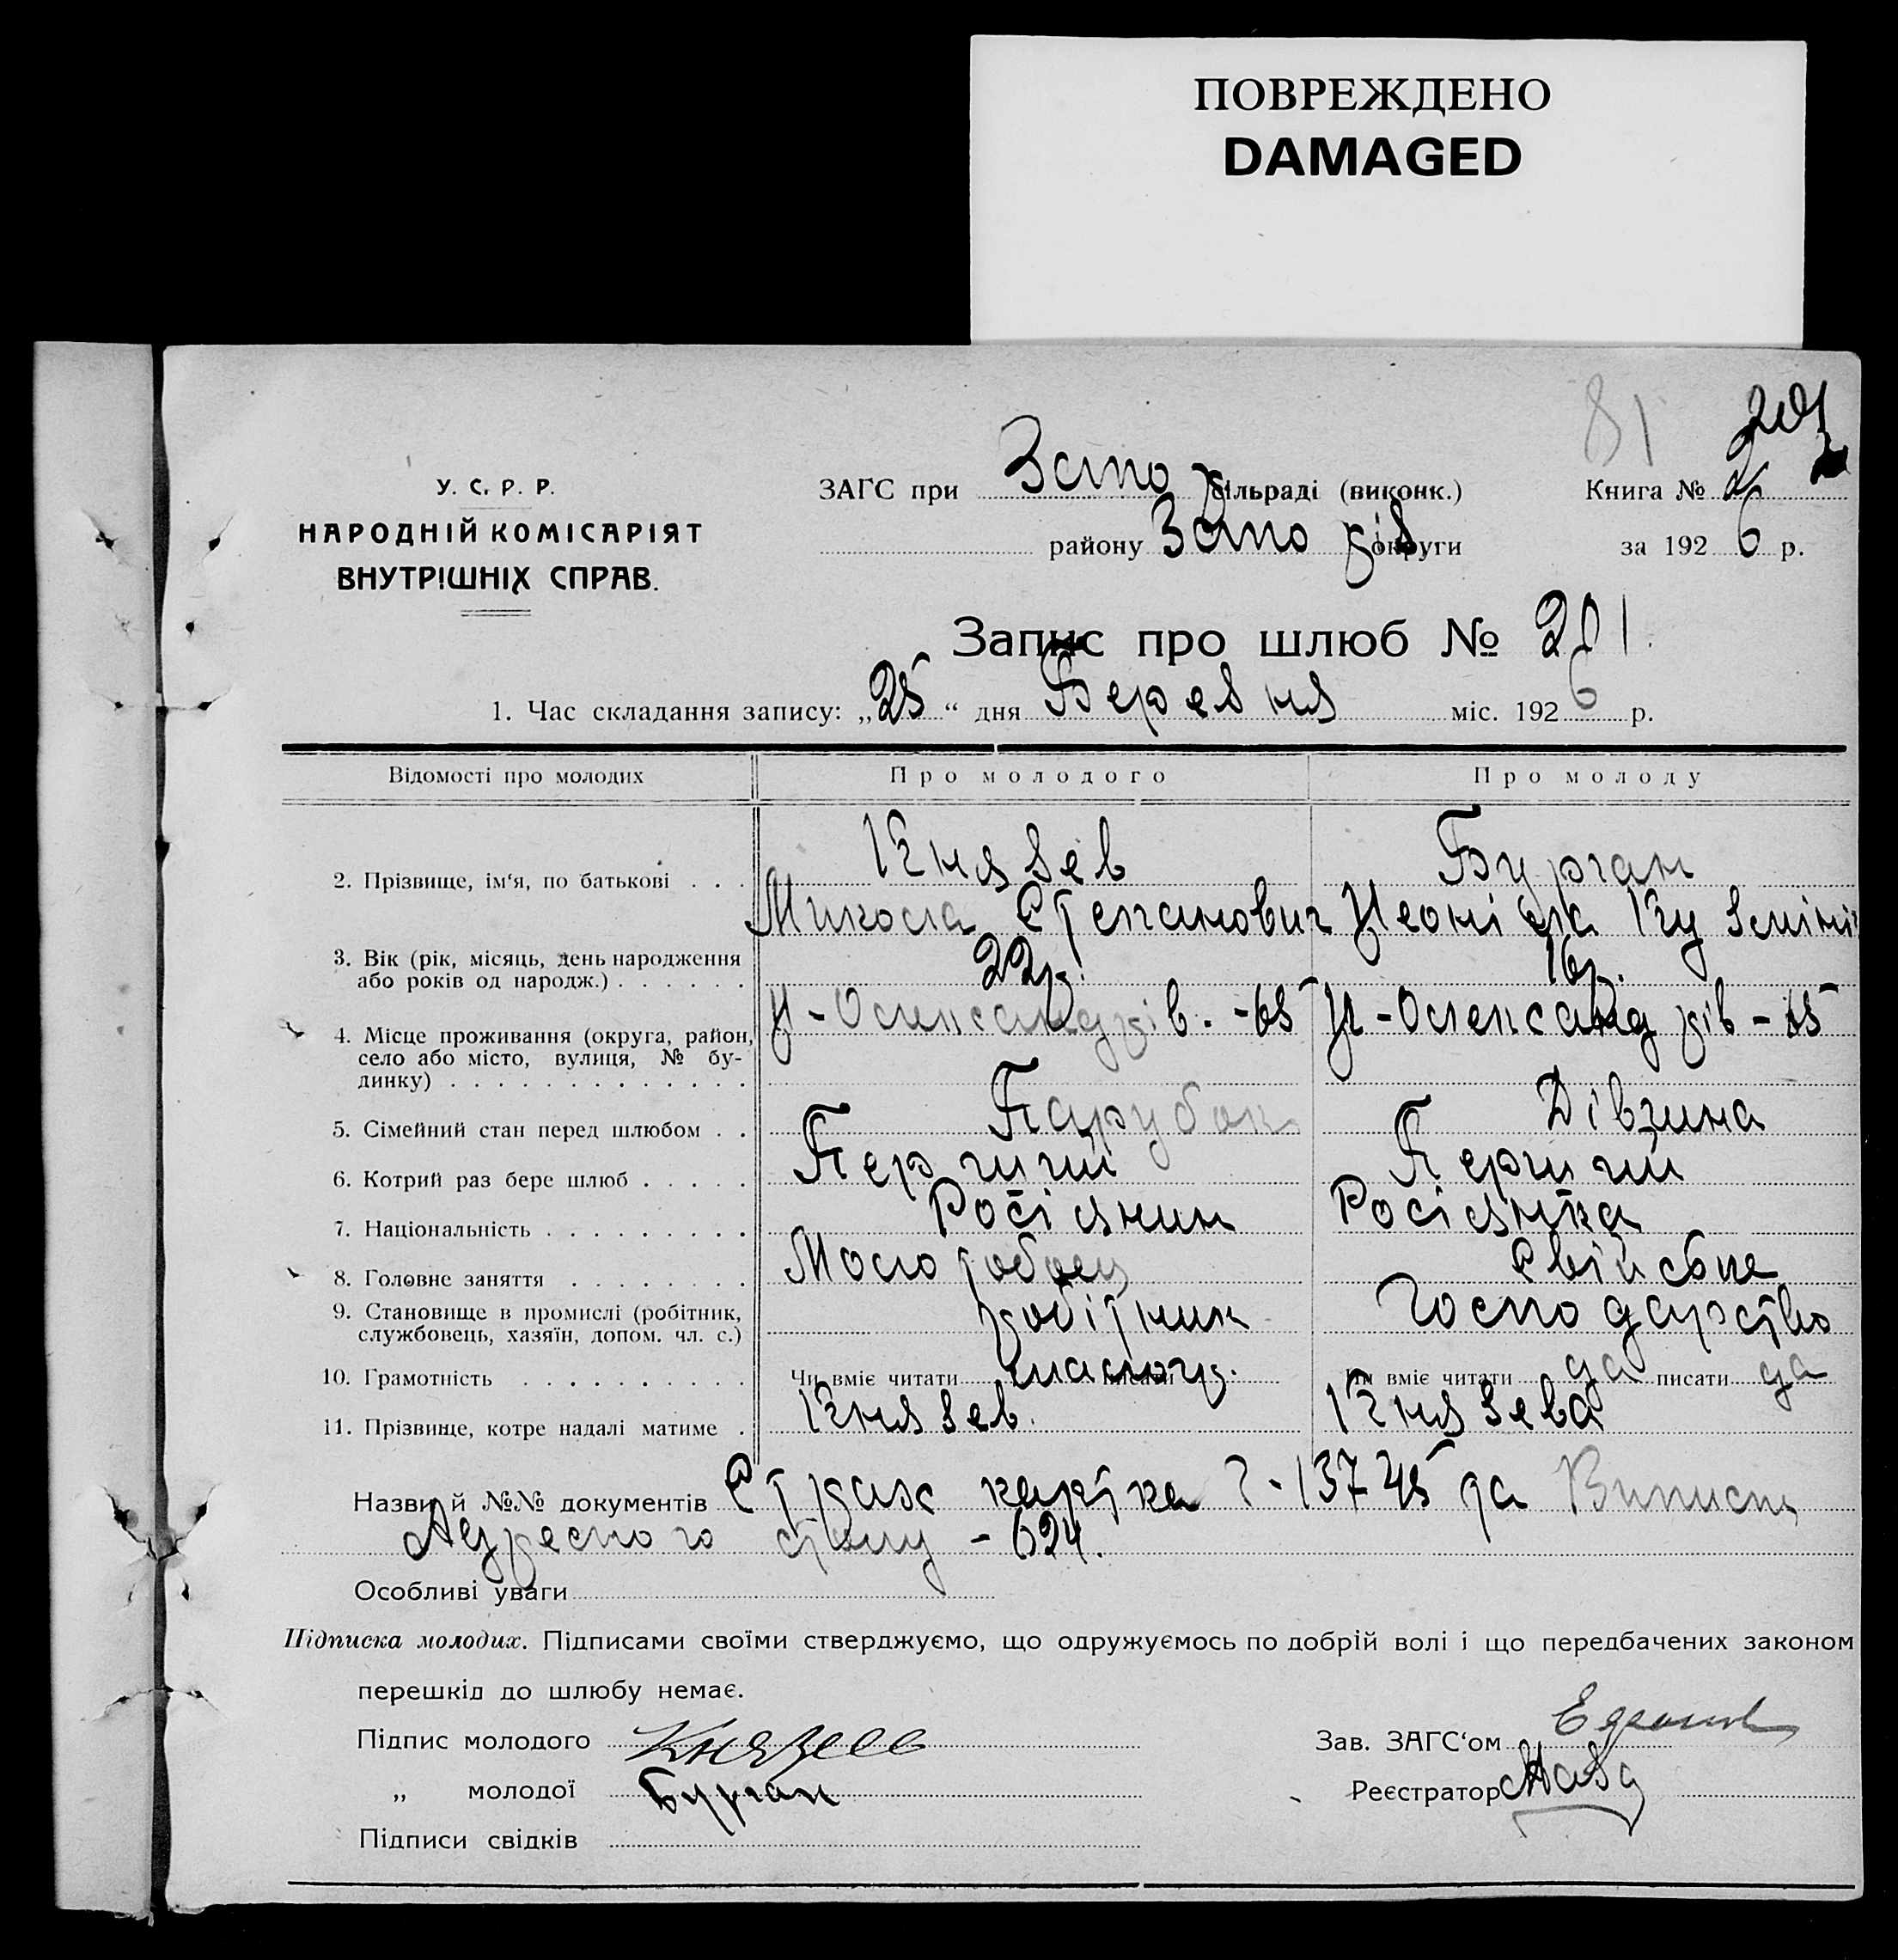 ПОВРЕЖДЕНО
DAMAGED
81 201
У. С. Р. Р.
НАРОДНІЙ КОМІСАРІЯТ
ВНУТРІШНІХ СПРАВ.
ЗАГС при Запо сільраді (виконк.) Книга № 2
району Запо різ округи за 1926 р.
Запис про шлюб № 201.
1. Час складання запису: „25“ дня Березня міс. 1926 р.
Відомості про молодих Про молодого Про молоду
2. Прізвище, ім‘я, по батькові . . . Князев Бурган
Микола Степанович Леоніда
3. Вік (рік, місяць, день народження або років од народж.) . . . . . . 22р. 16р.
4. Місце проживання (округа, район, село або місто, вулиця, № будинку) . . . . . . . . . . . . . Н-Олександрів. - 65 Н-Олександрів - 65
5. Сімейний стан перед шлюбом . . Парубок Дівчина
6. Котрий раз бере шлюб . . . . . Перший Перший
7. Національність . . . . . . . . . Росіянин Росіянка
8. Головне заняття . . . . . . . . Свійське
9. Становище в промислі (робітник, службовець, хазяїн, допом. чл. с.) робітник господарство
10. Грамотність . . . . . . . . . . Чи вміє читати писати малогр. Чи вміє читати да писати да
11. Прізвище, котре надалі матиме . Князев. Князева
Назви й №№ документів Страх картка Ч-13745 да Виписи
Адресного столу - 624.
Особливі уваги
Підписка молодих. Підписами своїми стверджуємо, що одружуємось по добрій волі і що передбачених законом
перешкід до шлюбу немає.
Підпис молодого Князев Зав. ЗАГС‘ом
„ молодої Бурган Реєстратор
Підписи свідків